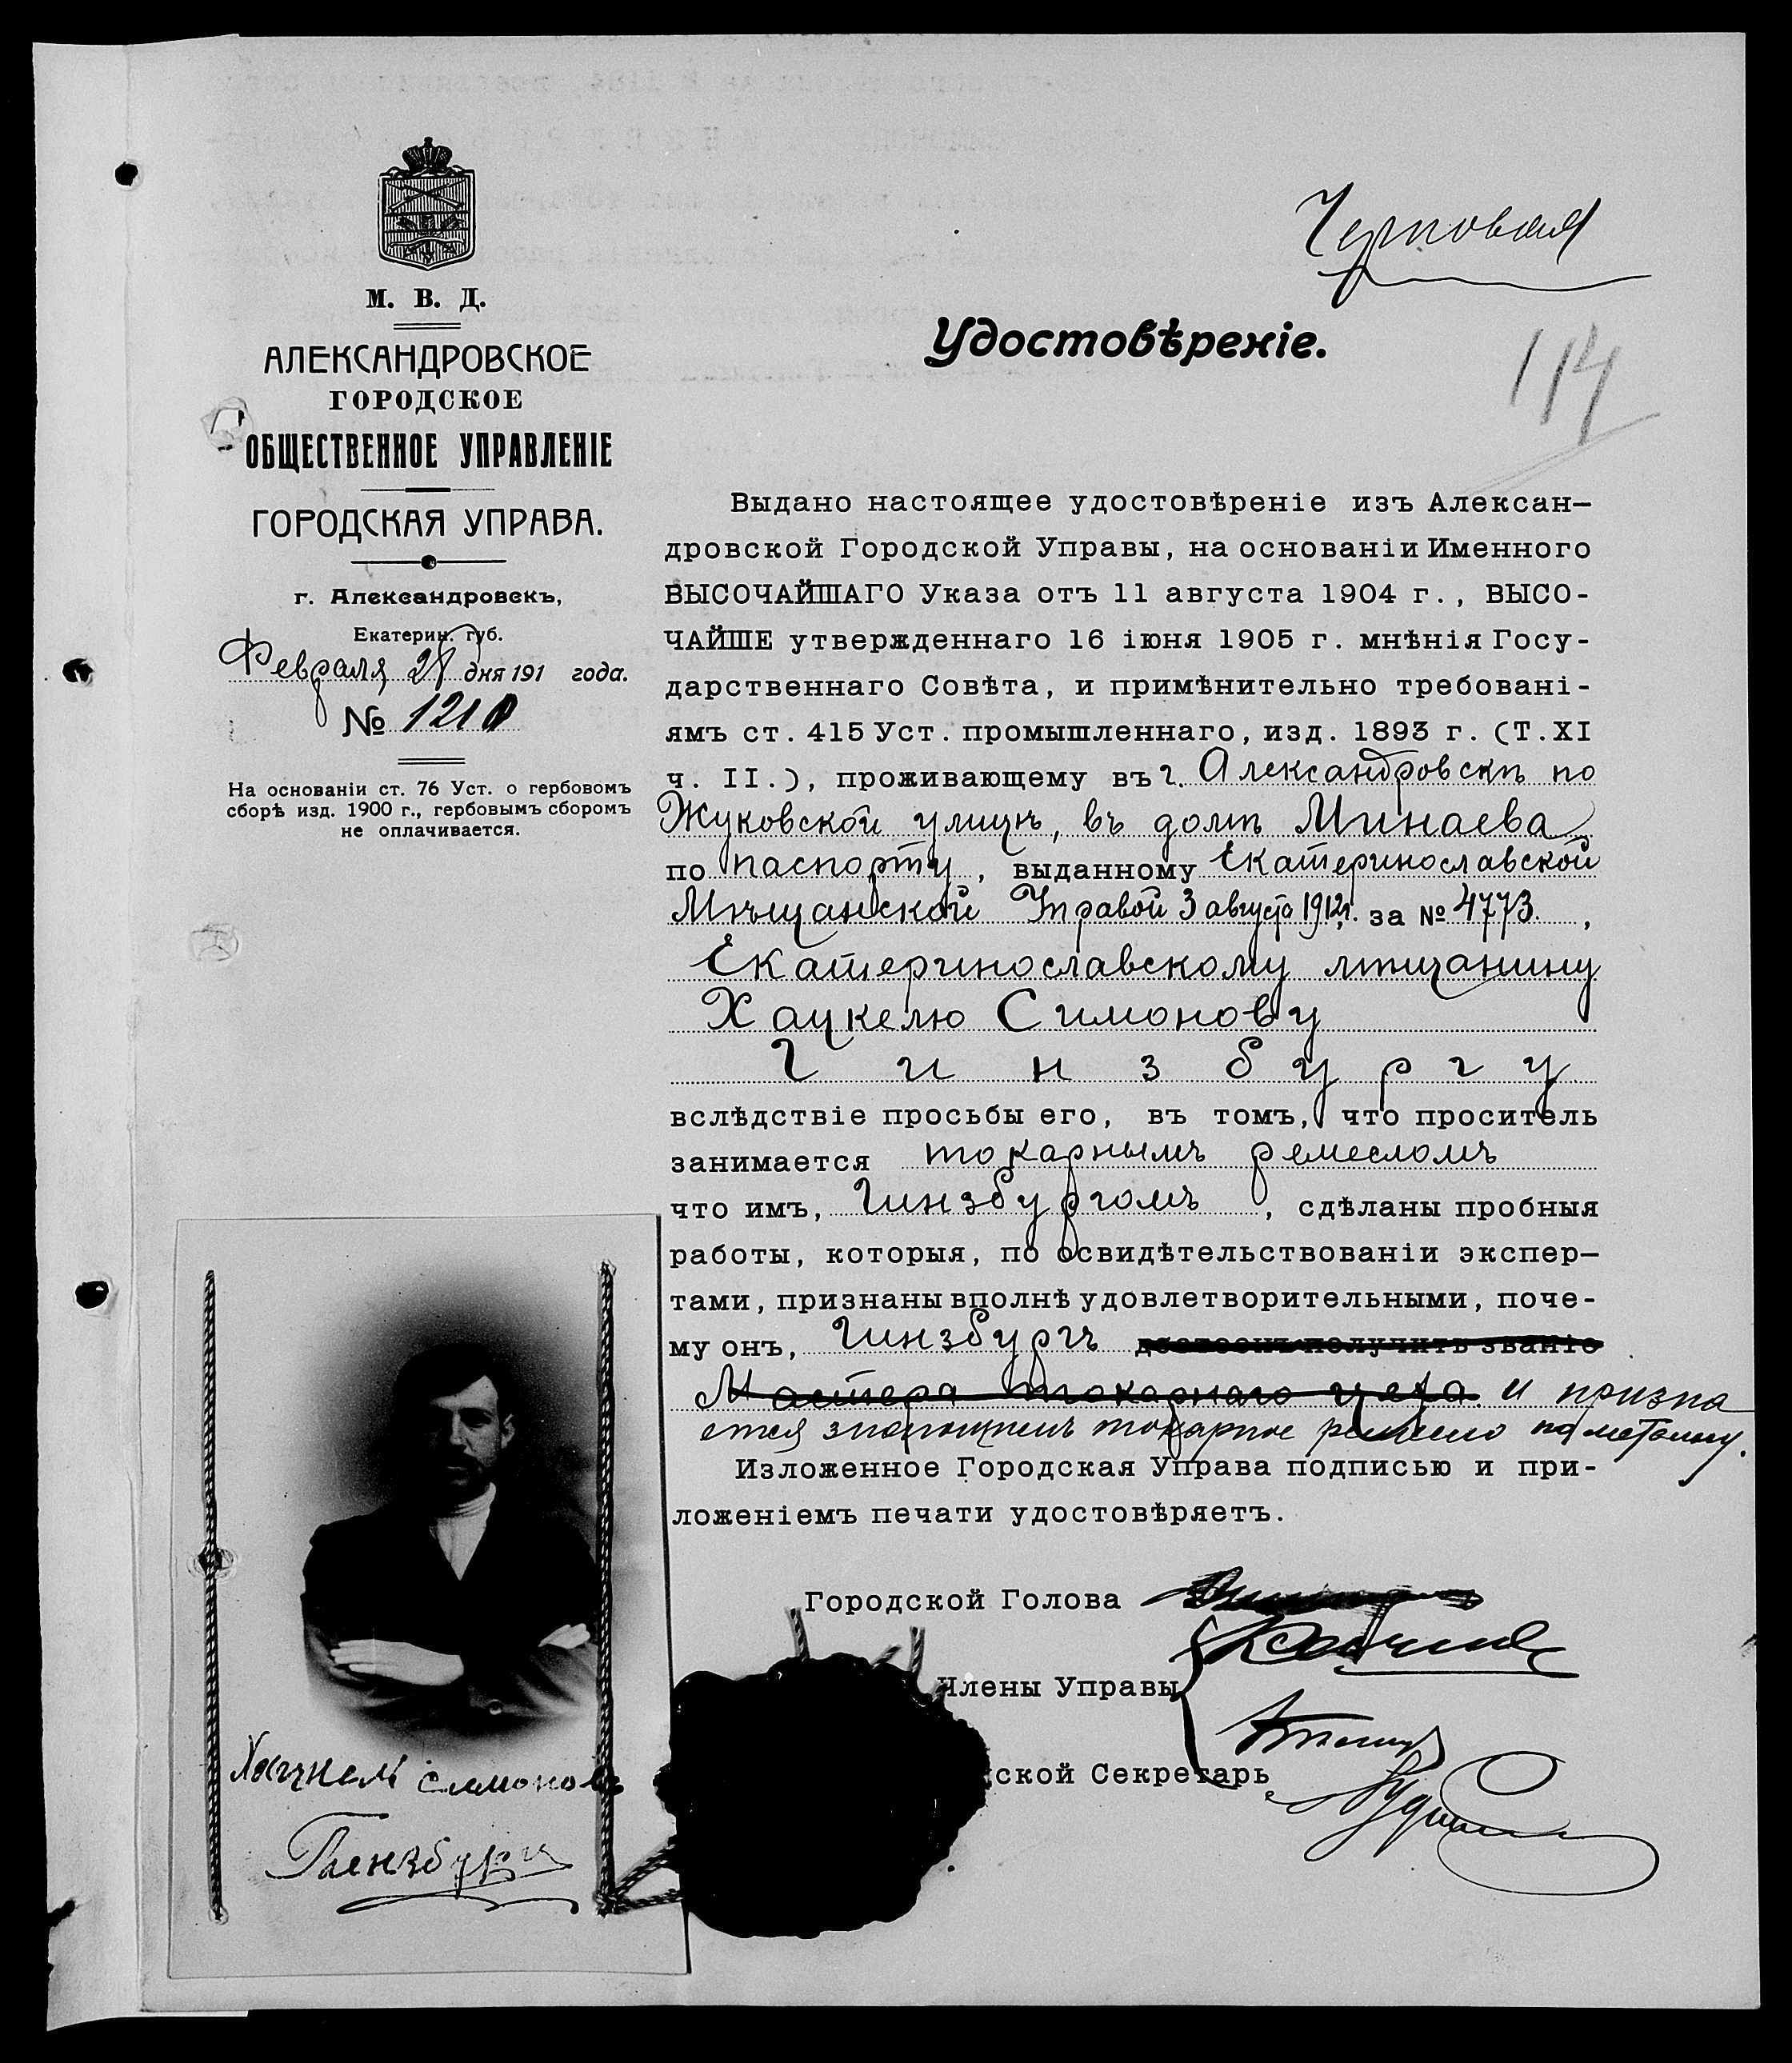 М. В. Д.
АЛЕКСАНДРОВСКОЕ
ГОРОДСКОЕ
ОБЩЕСТВЕННОЕ УПРАВЛЕНІЕ
ГОРОДСКАЯ УПРАВА.
г. Александровскъ,
Екатерин. губ.
Февраля 28 дня 191 года.
№ 1210
На основаніи ст. 76 Уст. о гербовомъ
сборѣ изд. 1900 г., гербовымъ сборомъ
не оплачивается.
Черновая
Удостовѣреніе.
114
Выдано настоящее удостовѣреніе изъ Алексан-
дровской Городской Управы, на основаніи Именного
ВЫСОЧАЙШАГО Указа отъ 11 августа 1904 г., ВЫСО-
ЧАЙШЕ утвержденнаго 16 іюня 1905 г. мнѣнія Госу-
дарственнаго Совѣта, и примѣнительно требовані-
ямъ ст. 415 Уст. промышленнаго, изд. 1893 г. (Т. XI
ч. II.), проживающему въ г. Александровскѣ по
Жуковской улицѣ, въ домѣ Минаева
по паспорту, выданному Екатеринославской
Мѣщанской Управой 3 августа 1912 г. за № 4773,
Екатеринославскому мѣщанину
Хацкелю Симонову
Гинзбургу
вслѣдствіе просьбы его, въ томъ, что проситель
занимается токарнымъ ремесломъ
что имъ, Гинзбургомъ, сдѣланы пробныя
работы, которыя, по освидѣтельствованіи экспер-
тами, признаны вполнѣ удовлетворительными, поче-
му онъ, Гинзбургъ достоенъ получить званіе
Мастера токарнаго цеха и призна
ется знающимъ токарное ремесло по металлу.
Изложенное Городская Управа подписью и при-
ложеніемъ печати удостовѣряетъ.
Городской Голова
Члены Управы
ской Секретарь
Хацкель Симоновъ
Гинзбургъ